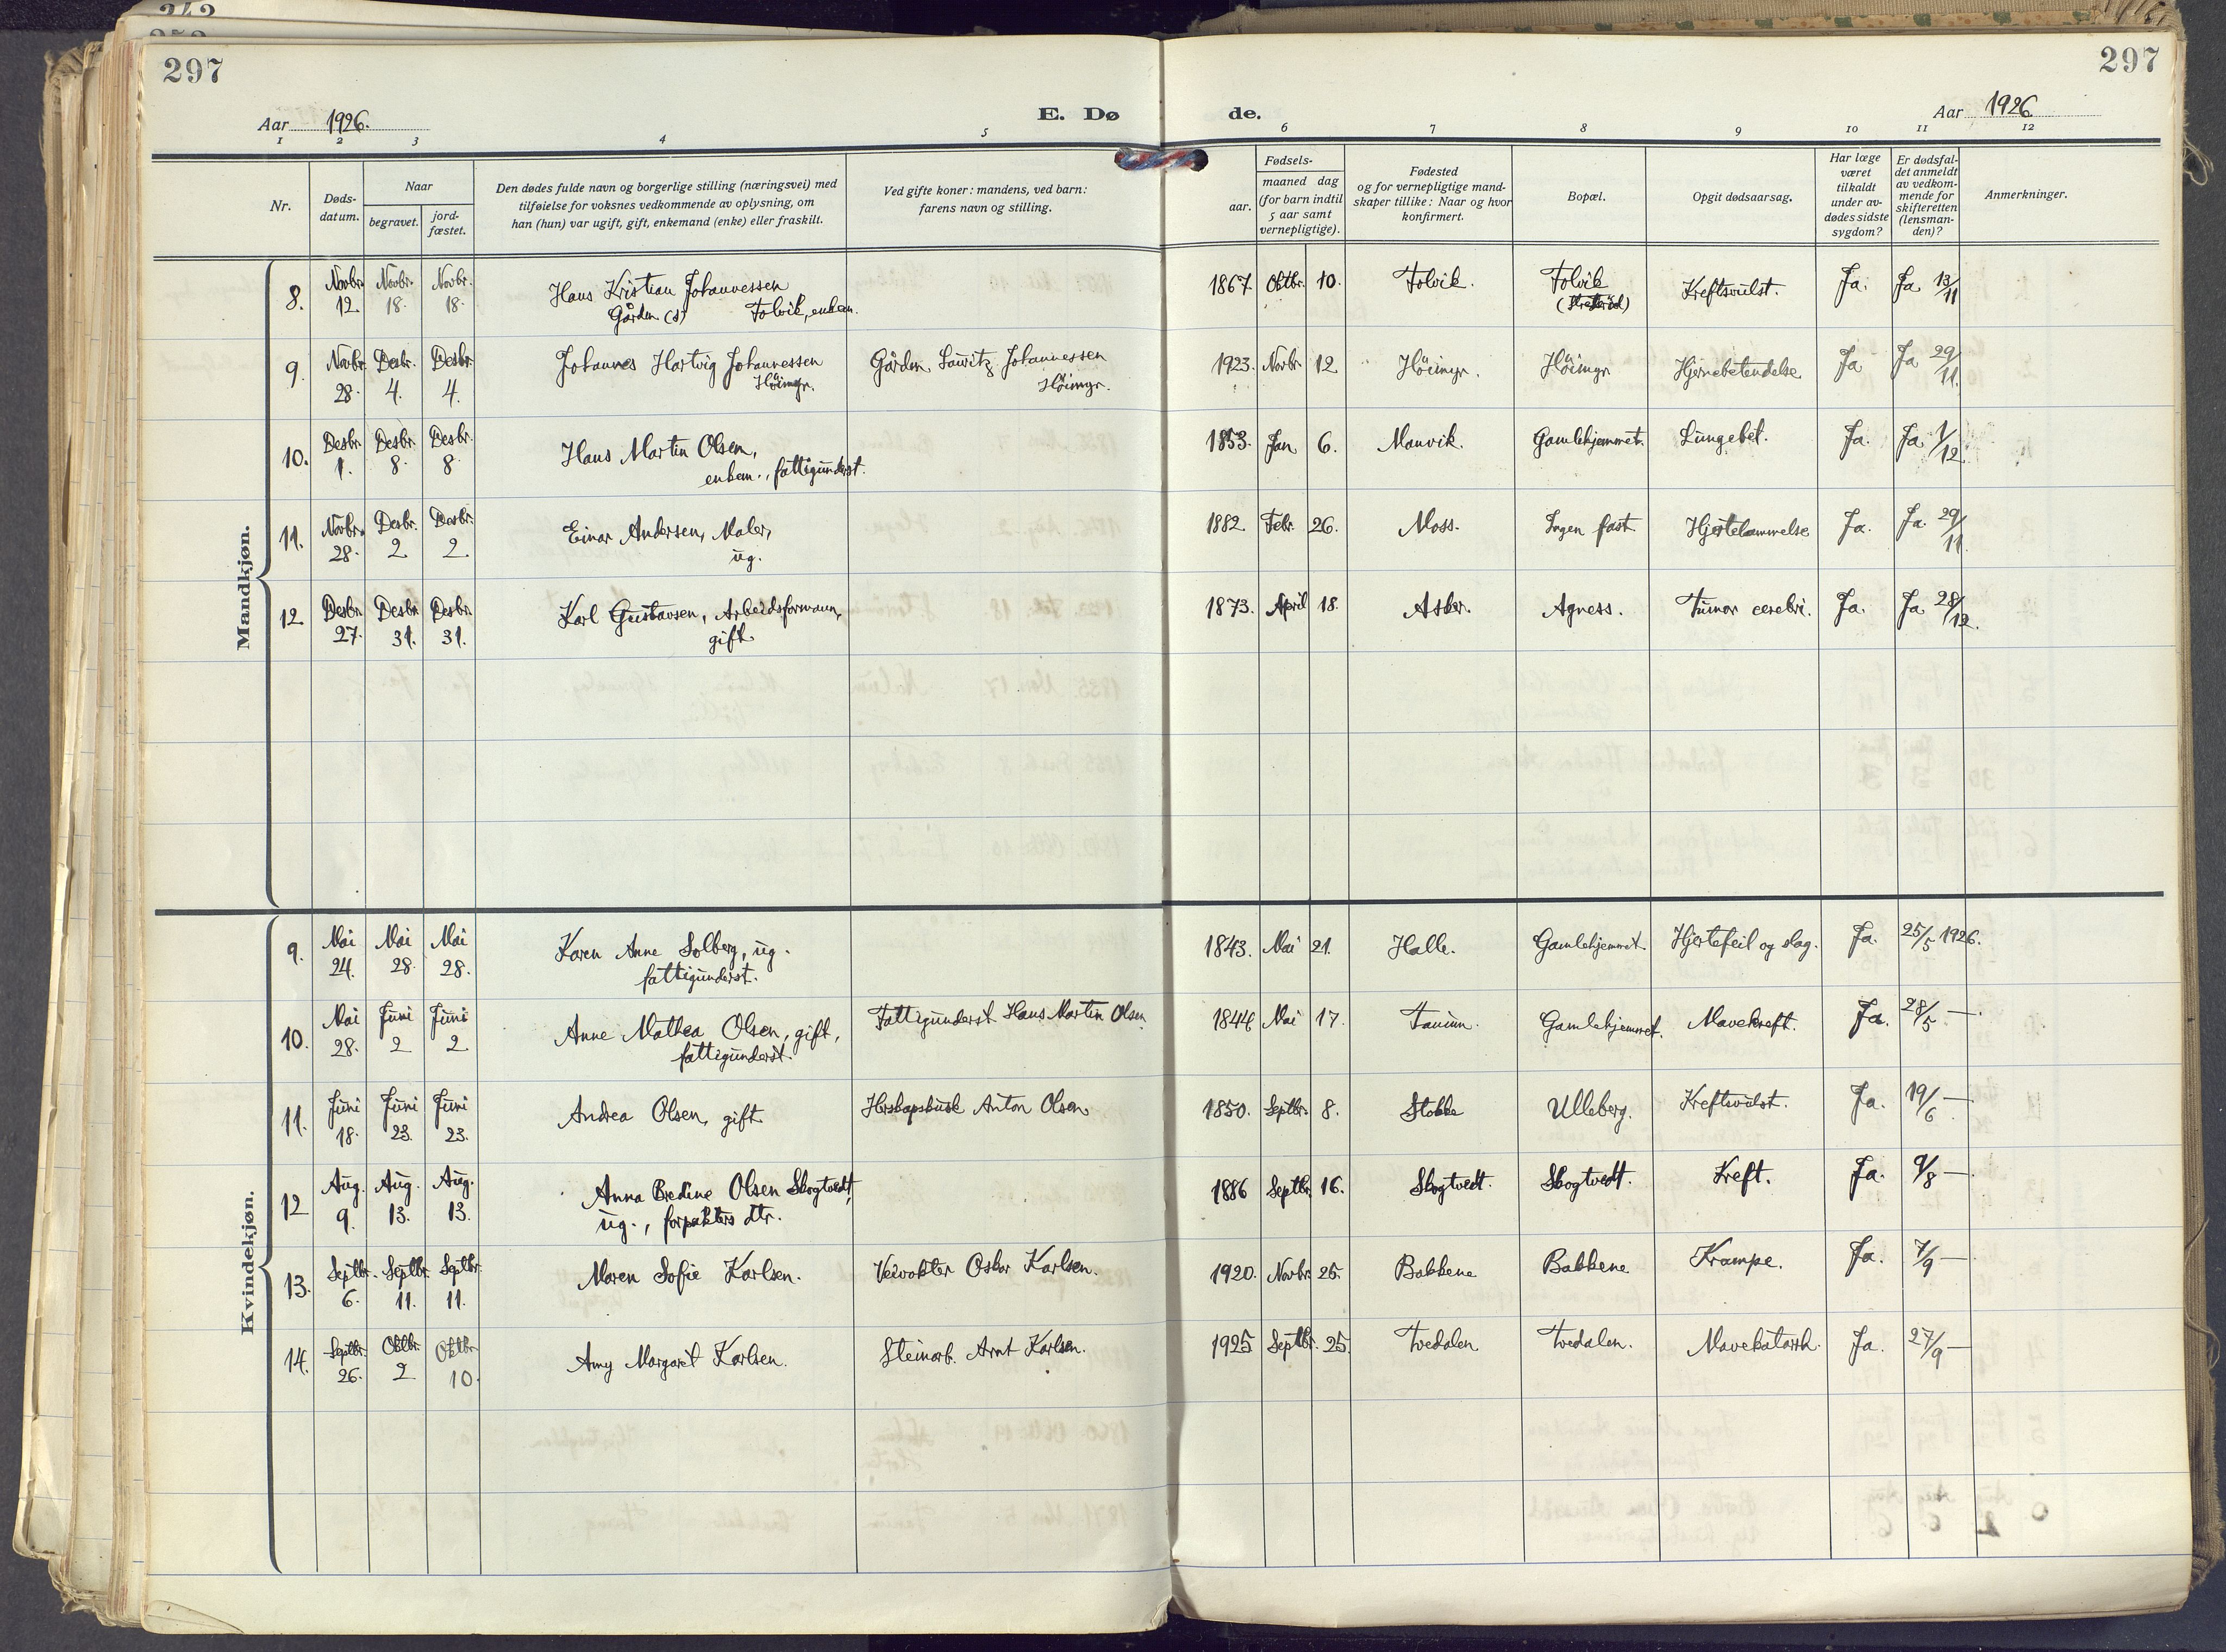 242
297
297
Aar 1926.
E. Dø
de.
Aar 1926
1 2 3 4 5 6 7 8 9 10 11 12
Nr.
Døds-
datum.
Naar
begravet.
jord-
fæstet.
Den dødes fulde navn og borgerlige stilling (næringsvei) med
tilføielse for voksnes vedkommende av oplysning, om
han (hun) var ugift, gift, enkemand (enke) eller fraskilt.
Ved gifte koner: mandens, ved barn:
farens navn og stilling.
Fødsels-
aar.
maaned dag
(for barn indtil
5 aar samt
vernepligtige).
Fødested
og for vernepligtige mand-
skaper tillike: Naar og hvor
konfirmert.
Bopæl.
Opgit dødsaarsag.
Har læge
været
tilkaldt
under av-
dødes sidste
sygdom?
Er dødsfal-
det anmeldt
av vedkom-
mende for
skifteretten
(lensman-
den)?
Anmerkninger.
Mandkjøn.
8. Novbr. 12. Novbr. 18. Novbr. 18. Hans Kristian Johannessen 1867 Oktbr. 10. Tolvik. Tolvik Kreftsvulst. Ja. Ja 13/11
Gårdm. (s) Tolvik, enkem.
9. Novbr. 28. Desbr. 4. Desbr. 4. Johannes Hartvig Johannessen Gårdm. Lauritz Johannessen 1923. Novbr. 12 Höimyr. Höimyr Hjernebetendelse Ja Ja 29/11.
Höimyr. Höimyr.
10. Desbr. 1. Desbr. 8. Desbr. 8. Hans Martin Olsen, 1853. Jan. 6. Manvik. Gamlehjemmet. Lungebet. Ja. Ja 1/12.
enkem., fattigunderst.
11. Novbr. 28. Desbr. 2. Desbr. 2. Einar Andersen, Maler, 1882. Febr. 26. Moss. Ingen fast. Hjertelammelse Ja. Ja. 29/11.
ug.
12 Desbr. 27. Desbr. 31. Desbr. 31. Karl Gustavsen, Arbeidsformann, 1873. April 18. Asker. Agness. Tumor cerebri. Ja. Ja 28/12.
gift.
Kvindekjøn.
9. Mai 24. Mai 28. Mai 28. Karen Anne Solberg, ug. 1843. Mai 21. Halle. Gamlehjemmet. Hjertefeil og slag. Ja. 25/5 1926.
fattigunderst.
10. Mai 28. Juni 2 Juni 2. Anne Mathea Olsen, gift, Fattigunderst. Hans Martin Olsen. 1844. Mai 17. Tanum. Gamlehjemmet. Mavekreft. Ja. 28/5 —.
fattigunderst.
11. Juni 18. Juni 23. Juni 23. Andrea Olsen, gift. Herskapskusk Anton Olsen. 1850. Septbr. 8. Stokke Ulleberg. Kreftsvulst. Ja. 19/6 —
12 Aug. 9. Aug. 13. Aug. 13. Anna Bredine Olsen Skogtvedt, 1886 Septbr. 16. Skogtvedt. Skogtvedt. Kreft. Ja. 9/8 —.
ug., forpakters dtr.
13. Septbr. 6. Septbr. 11. Septbr. 11. Maren Sofie Karlsen. Veivokter Oskar Karlsen. 1920. Novbr. 25. Bakkene Bakkene Krampe. Ja. 7/9 —.
14. Septbr. 26. Oktbr. 2 Oktbr. 10. Amy Margaret Karlsen. Steinarb. Arnt Karlsen. 1925 Septbr. 25. Tvedalen Tvedalen. Mavekatarrh. Ja. 27/9 —